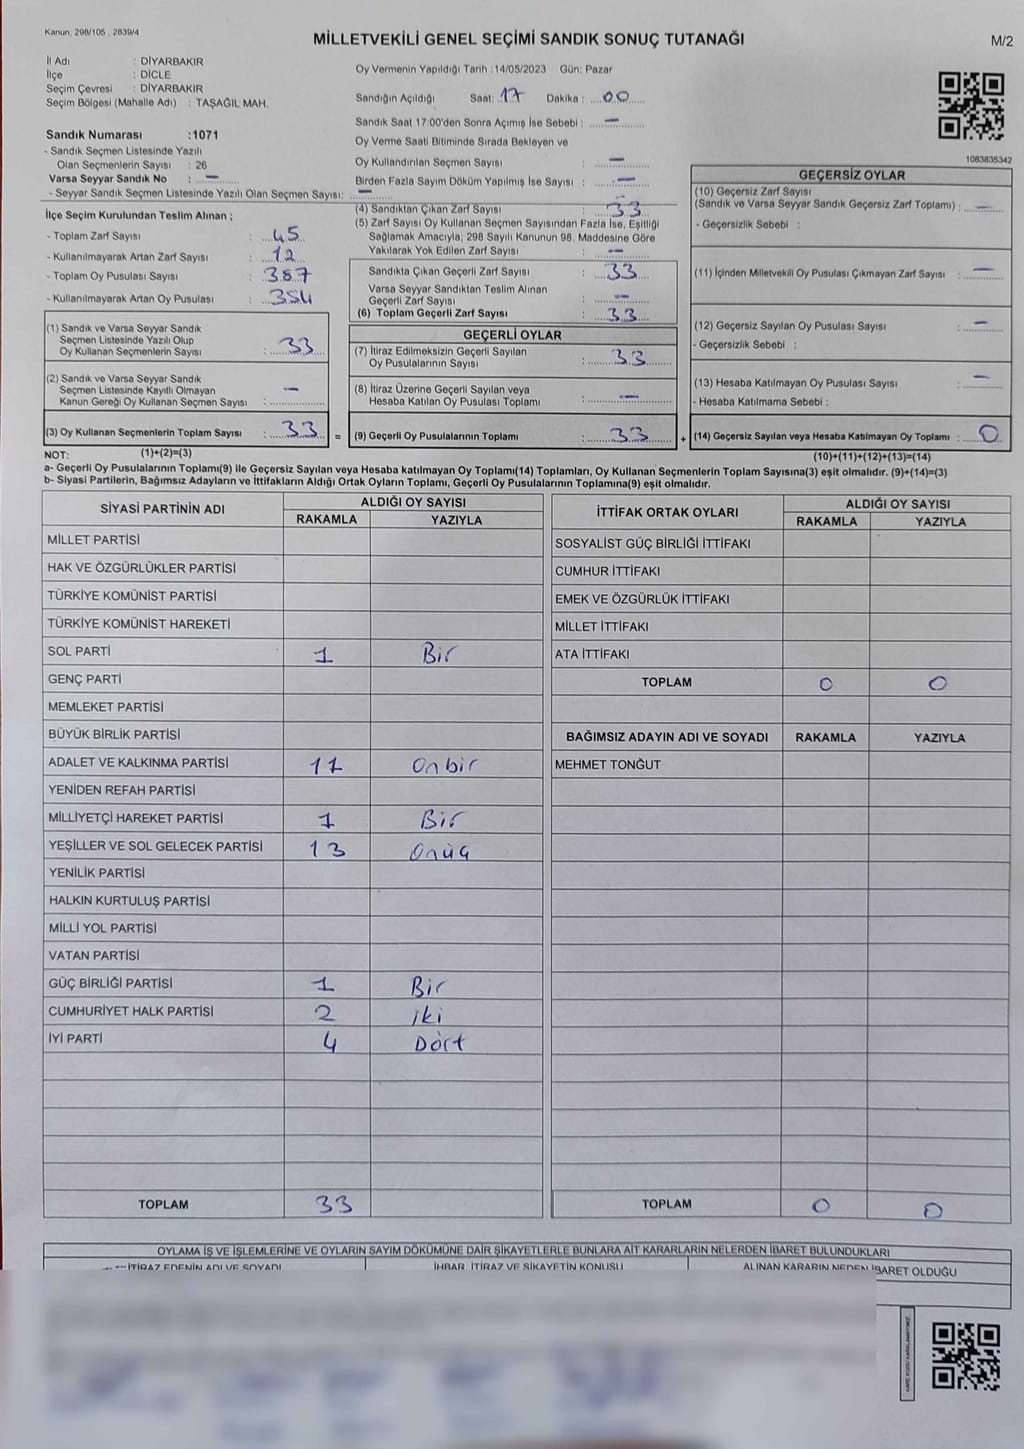 Kanun; 298/105 , 2839/4
MİLLETVEKİLİ GENEL SEÇİMİ SANDIK SONUÇ TUTANAĞI
M/2
İl Adı : DİYARBAKIR
İlçe : DİCLE
Seçim Çevresi : DİYARBAKIR
Seçim Bölgesi (Mahalle Adı) : TAŞAĞIL MAH.
Sandık Numarası :1071
- Sandık Seçmen Listesinde Yazılı
Olan Seçmenlerin Sayısı : 26
Varsa Seyyar Sandık No : —
- Seyyar Sandık Seçmen Listesinde Yazılı Olan Seçmen Sayısı: —
Oy Vermenin Yapıldığı Tarih :14/05/2023 Gün: Pazar
Sandığın Açıldığı Saat: 17 Dakika : 00
Sandık Saat 17:00'den Sonra Açımış İse Sebebi : —
Oy Verme Saati Bitiminde Sırada Bekleyen ve
Oy Kullandırılan Seçmen Sayısı : —
Birden Fazla Sayım Döküm Yapılmış İse Sayısı : —
1083835342
İlçe Seçim Kurulundan Teslim Alınan ;
- Toplam Zarf Sayısı : 45
- Kullanılmayarak Artan Zarf Sayısı : 12
- Toplam Oy Pusulası Sayısı : 387
- Kullanılmayarak Artan Oy Pusulası : 354
(1) Sandık ve Varsa Seyyar Sandık
Seçmen Listesinde Yazılı Olup
Oy Kullanan Seçmenlerin Sayısı : 33
(2) Sandık ve Varsa Seyyar Sandık
Seçmen Listesinde Kayıtlı Olmayan
Kanun Gereği Oy Kullanan Seçmen Sayısı : —
(3) Oy Kullanan Seçmenlerin Toplam Sayısı : 33
(4) Sandıktan Çıkan Zarf Sayısı : 33
(5) Zarf Sayısı Oy Kullanan Seçmen Sayısından Fazla İse, Eşitliği
Sağlamak Amacıyla; 298 Sayılı Kanunun 98. Maddesine Göre
Yakılarak Yok Edilen Zarf Sayısı : —
Sandıkta Çıkan Geçerli Zarf Sayısı : 33
Varsa Seyyar Sandıktan Teslim Alınan
Geçerli Zarf Sayısı : —
(6) Toplam Geçerli Zarf Sayısı : 33
GEÇERLİ OYLAR
(7) İtiraz Edilmeksizin Geçerli Sayılan
Oy Pusulalarının Sayısı : 33
(8) İtiraz Üzerine Geçerli Sayılan veya
Hesaba Katılan Oy Pusulası Toplamı : —
= (9) Geçerli Oy Pusulalarının Toplamı : 33
GEÇERSİZ OYLAR
(10) Geçersiz Zarf Sayısı
(Sandık ve Varsa Seyyar Sandık Geçersiz Zarf Toplamı) : —
- Geçersizlik Sebebi :
(11) İçinden Milletvekili Oy Pusulası Çıkmayan Zarf Sayısı : —
(12) Geçersiz Sayılan Oy Pusulası Sayısı : —
- Geçersizlik Sebebi :
(13) Hesaba Katılmayan Oy Pusulası Sayısı : —
- Hesaba Katılmama Sebebi :
+ (14) Geçersiz Sayılan veya Hesaba Katılmayan Oy Toplamı : 0
NOT: (1)+(2)=(3)
(10)+(11)+(12)+(13)=(14)
a- Geçerli Oy Pusulalarının Toplamı(9) ile Geçersiz Sayılan veya Hesaba katılmayan Oy Toplamı(14) Toplamları, Oy Kullanan Seçmenlerin Toplam Sayısına(3) eşit olmalıdır. (9)+(14)=(3)
b- Siyasi Partilerin, Bağımsız Adayların ve İttifakların Aldığı Ortak Oyların Toplamı, Geçerli Oy Pusulalarının Toplamına(9) eşit olmalıdır.
SİYASİ PARTİNİN ADI
ALDIĞI OY SAYISI
RAKAMLA YAZIYLA
MİLLET PARTİSİ
HAK VE ÖZGÜRLÜKLER PARTİSİ
TÜRKİYE KOMÜNİST PARTİSİ
TÜRKİYE KOMÜNİST HAREKETİ
SOL PARTİ 1 Bir
GENÇ PARTİ
MEMLEKET PARTİSİ
BÜYÜK BİRLİK PARTİSİ
ADALET VE KALKINMA PARTİSİ 11 Onbir
YENİDEN REFAH PARTİSİ
MİLLİYETÇİ HAREKET PARTİSİ 1 Bir
YEŞİLLER VE SOL GELECEK PARTİSİ 13 Onüç
YENİLİK PARTİSİ
HALKIN KURTULUŞ PARTİSİ
MİLLİ YOL PARTİSİ
VATAN PARTİSİ
GÜÇ BİRLİĞİ PARTİSİ 1 Bir
CUMHURİYET HALK PARTİSİ 2 iki
İYİ PARTİ 4 Dört
TOPLAM 33
İTTİFAK ORTAK OYLARI
ALDIĞI OY SAYISI
RAKAMLA YAZIYLA
SOSYALİST GÜÇ BİRLİĞİ İTTİFAKI
CUMHUR İTTİFAKI
EMEK VE ÖZGÜRLÜK İTTİFAKI
MİLLET İTTİFAKI
ATA İTTİFAKI
TOPLAM 0 0
BAĞIMSIZ ADAYIN ADI VE SOYADI RAKAMLA YAZIYLA
MEHMET TONĞUT
TOPLAM 0 0
OYLAMA İŞ VE İŞLEMLERİNE VE OYLARIN SAYIM DÖKÜMÜNE DAİR ŞİKAYETLERLE BUNLARA AİT KARARLARIN NELERDEN İBARET BULUNDUKLARI
İTİRAZ EDENİN ADI VE SOYADI İHBAR, İTİRAZ VE ŞİKAYETİN KONUSU ALINAN KARARIN NEDEN İBARET OLDUĞU